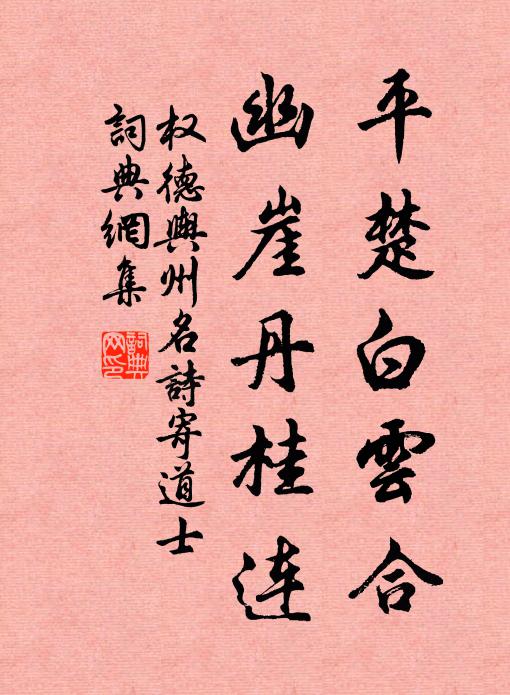 平楚白雲合
幽崖丹桂连
权德輿州名詩寄道士
詞典網集
詞典网印